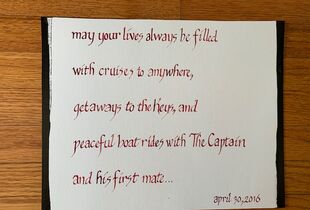 may your lives always be filled
with cruises to anywhere,
getaways to the Keys, and
peaceful boat rides with The Captain
and his first mate...
april 30, 2016